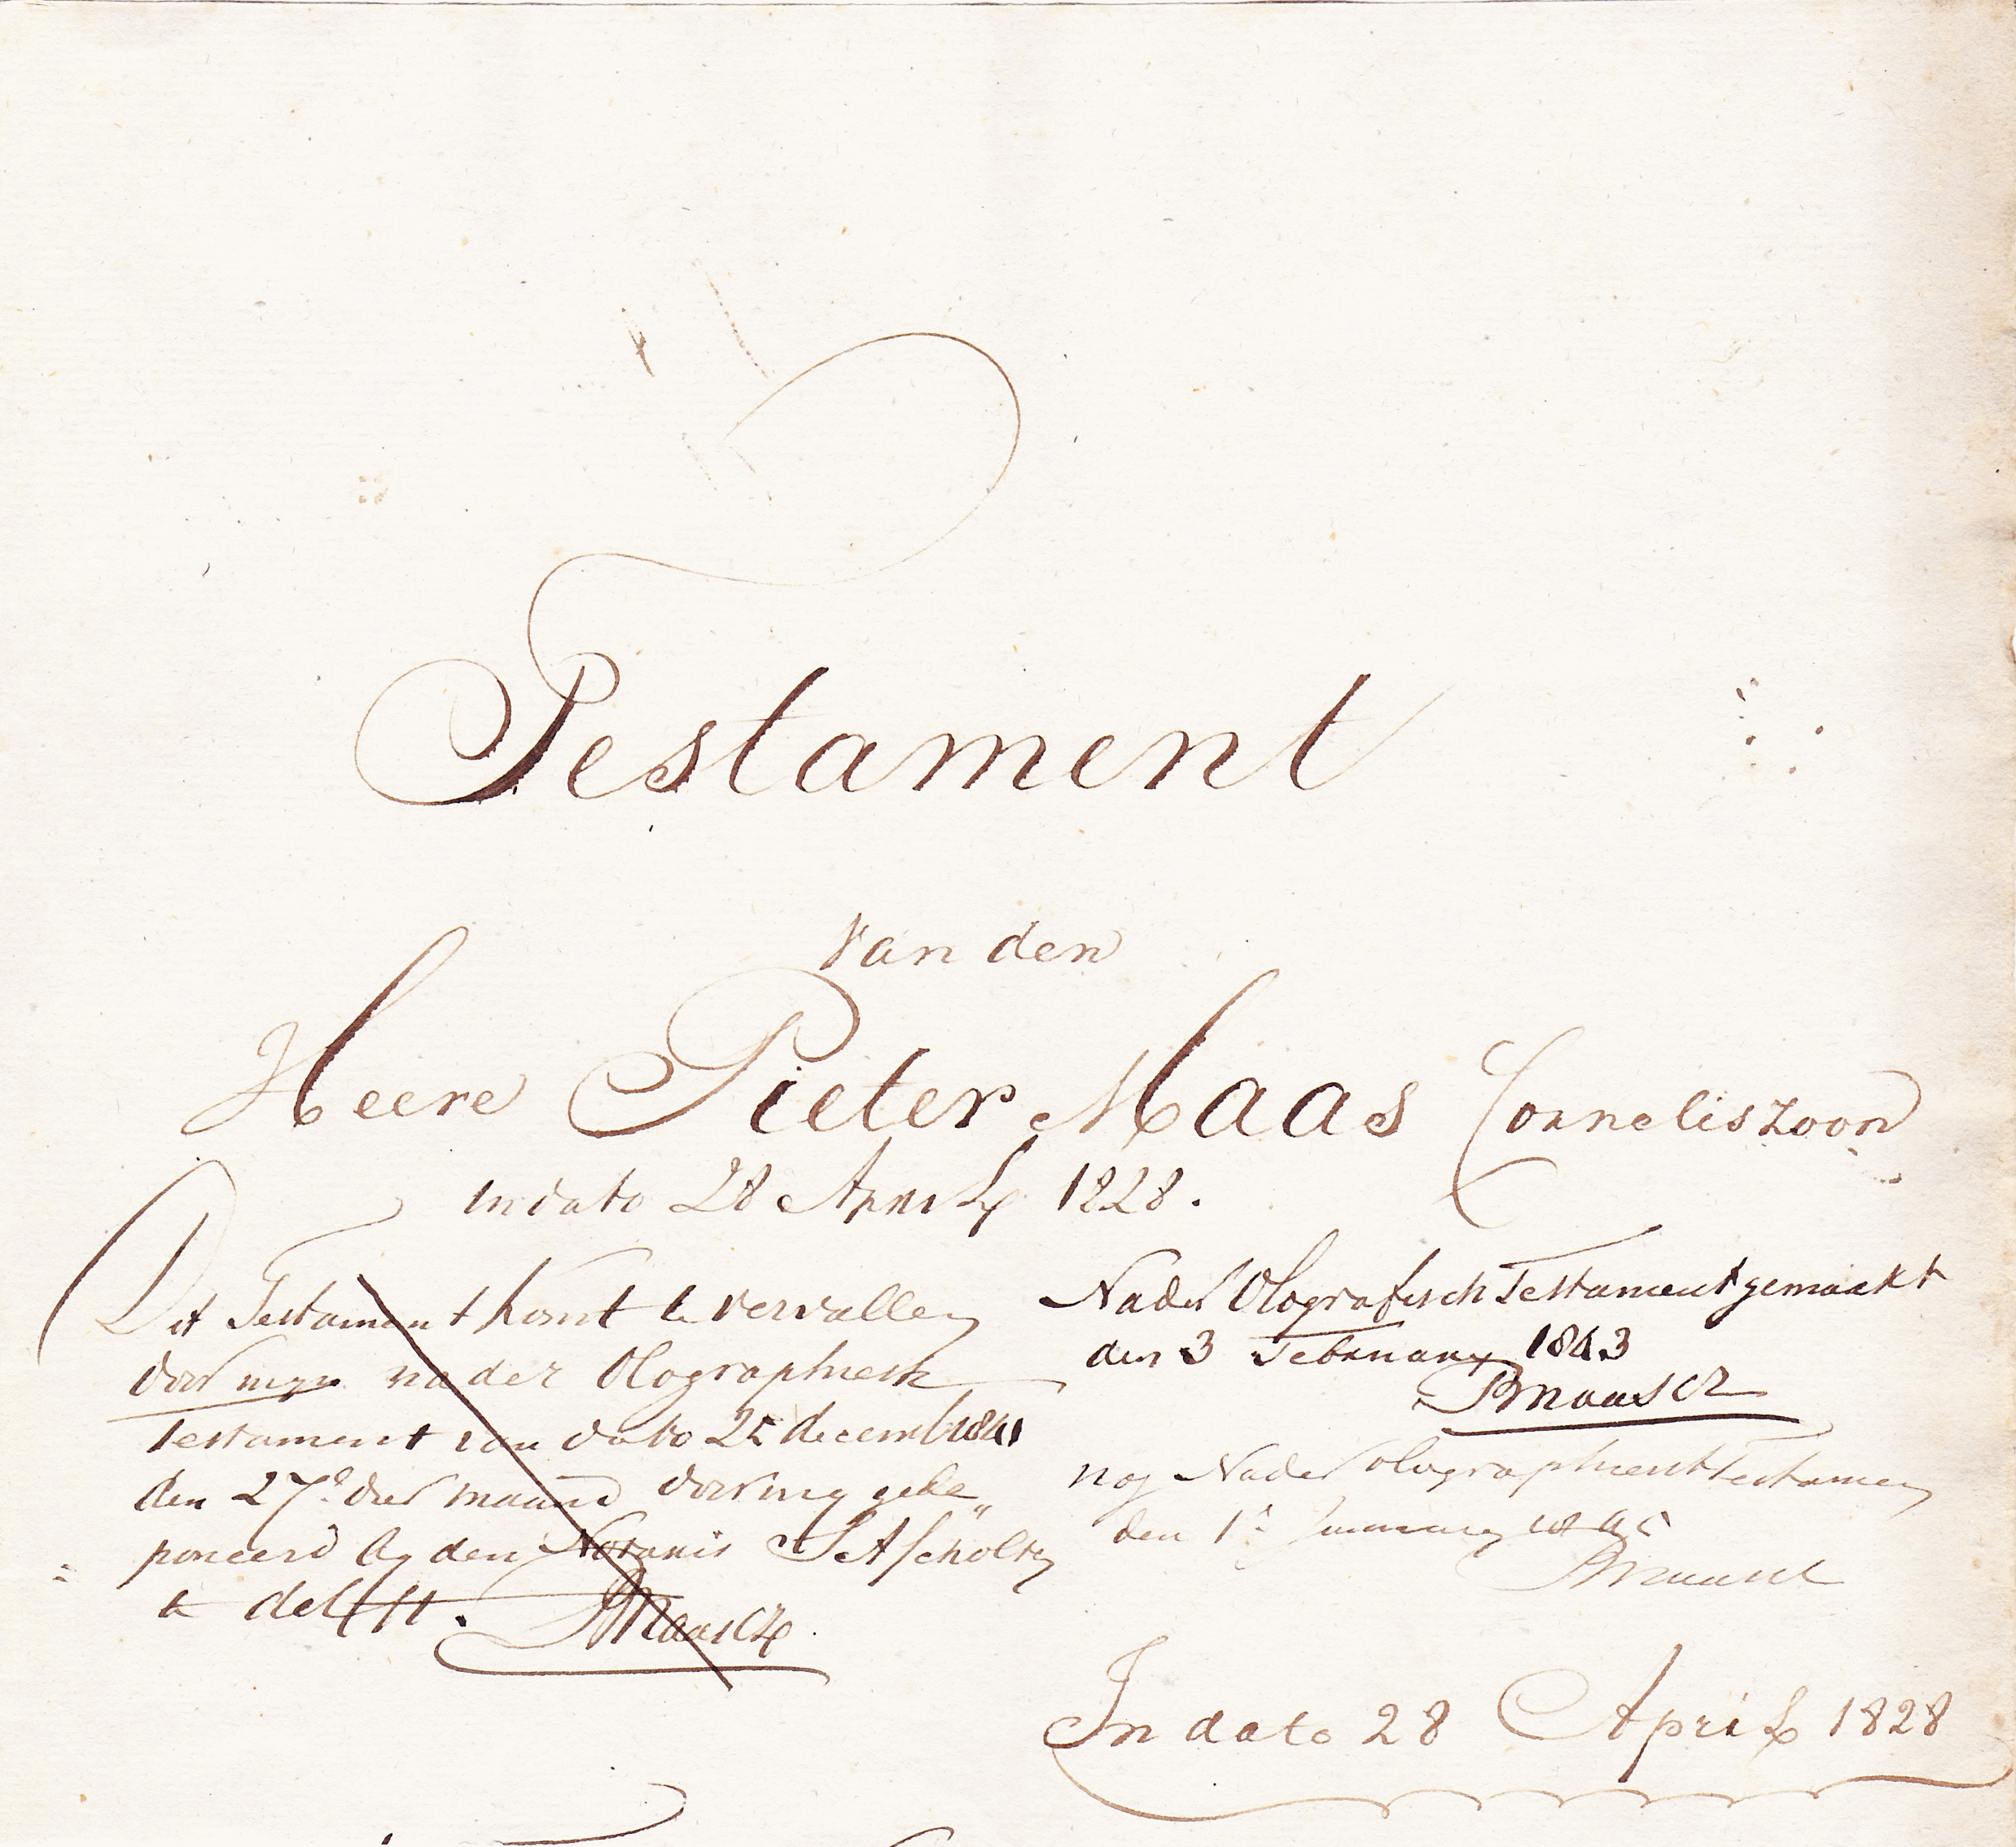 Testament
van den
Heere Pieter Maas Corneliszoon
in dato 28 April 1828.
Dit Testament komt te vervallen
door myn nader Olographiesch
Testament van dato 25 decemb 1841
den 27e. dier maand door my gede„
poneerd by den Notaris Scholtz
te delfft. PMaasCz
Nader Olografisch Testament gemaakt
den 3 February 1843
PmaasCz
nog Nader olographiesch Testamen
den 1e January
PMaasCz
In dato 28 April 1828